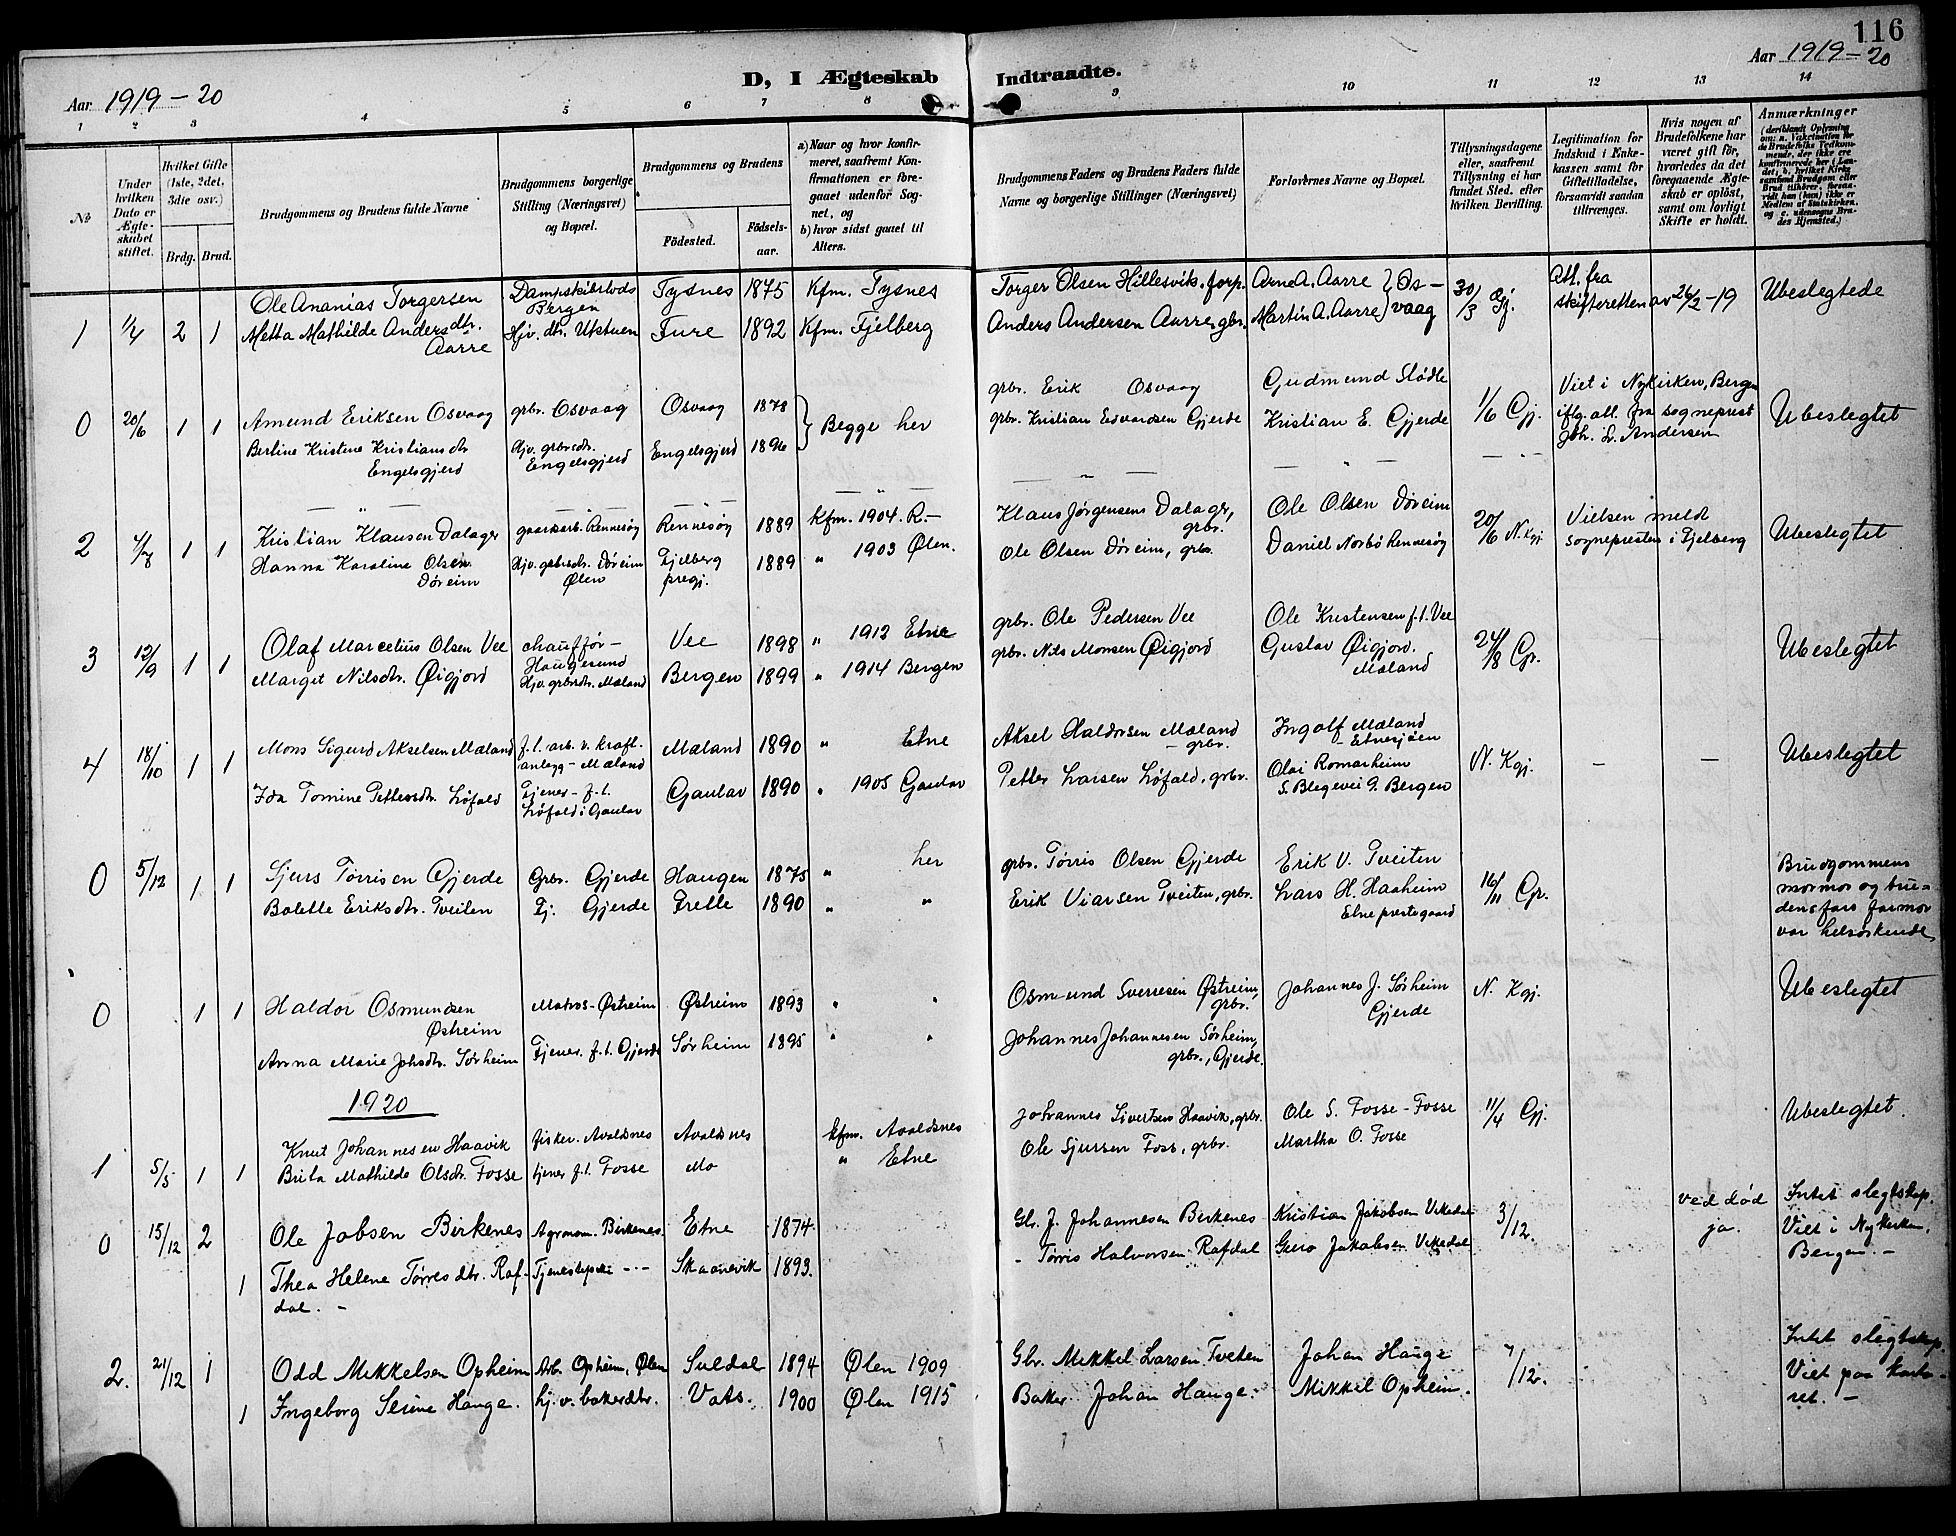 116
D, I Ægteskab Indtraadte.
Aar 1919-20
Aar 1919-20
1 2 3 4 5 6 7 8 9 10 11 12 13 14
No
Under hvilken Dato er Ægteskabet stiftet.
Hvilket Gifte (1ste, 2det, 3die osv.)
Brdg. Brud.
Brudgommens og Brudens fulde Navne
Brudgommens borgerlige Stilling (Næringsvei) og Bopæl.
Brudgommens og Brudens
Födested.
Födsels-aar.
a) Naar og hvor konfirmeret, saafremt Konfirmationen er foregaaet udenför Sognet, og
b) hvor sidst gaaet til Alters.
Brudgommens Faders og Brudens Faders fulde Navne og borgerlige Stillinger (Næringsvei)
Forlovernes Navne og Bopæl.
Tillysningsdagene eller, saafremt Tillysning ei har fundet Sted, efter hvilken Bevilling.
Legitimation for Indskud i Enkekassen samt for Giftetilladelse, forsaavidt saadan tiltrænges.
Hvis nogen af Brudefolkene har været gift för, hvorledes da det foregaaende Ægteskab er oplöst, samt om lovligt Skifte er holdt.
Anmærkninger
(deriblandt Oplysning om: a. Vakcination for de Brudefolks Vedkommende, der ikke ere konfirmerede her i Landet; b. hvilket Kirkesamfund Brudgom eller Brud tilhörer, forsaavidt han (hun) ikke er Medlem af Statskirken, og c. udensogns Brudes Hjemsted.)
Ole Ananias Torgersen Dampskibslods Bergen Tysnes 1875 Kfm. Tysnes Torger Olsen Hillesvik, forp. Arne A. Aarre } Os- 30/3 Gj. Att. fra Ubeslegtede
1 1/4 2 1 Metta Mathilde Andersdtr. Aarre Hjv. dtr. Fure 1892 Kfm. Fjelberg Anders Andersen Aarre, gbr. Martin A. Aarre } vaag skifteretten av 26/2-19
0 20/6 1 1 Amund Eriksen Osvaag grbr. Osvaag Osvaag 1878 } Begge her grbr. Erik Osvaag Gudmund Slødle 1/6 Gj. Viet i Nykirken, Bergen Ubeslegtet
Berline Kristene Kristiansdtr. Engelsgjerd Hjv. grbrsdtr. Engelsgjerd Engelsgjerd 1896 grbr. Kristian Edvardsen Gjerde Kristian E. Gjerde iflg. att. fra sogneprest Joh. L. Andersen
2 4/7 1 1 Kristian Klausen Dalager gaardsarb. Rennesøy Rennesøy 1889 Kfm. 1904. R.- Klaus Jørgensens Dalager, grbr. Ole Olsen Døreim 20/6 N. Kgj. Vielsen meldt Ubeslegtet
Hanna Karoline Olsen Døreim Hjv. grbrsdtr. Døreim Ølen Fjelberg pregj. 1889 " 1903 Ølen. Ole Olsen Døreim, grbr. Daniel Norbø Rennesøy sognepresten i Fjelberg
3 12/9 1 1 Olaf Marcelius Olsen Vee chauffør- Haugesund Vee 1898 " 1912 Etne grbr. Ole Pedersen Vee Ole Kristensen f.t. Vee 24/8 Gr. Ubeslegtet
Marget Nilsdtr. Øigjord Hjv. grbrsdtr. Mæland Bergen 1899 " 1914 Bergen grbr. Nils Monsen Øigjord Gustav Øigjord. Mæland
4 18/10 1 1 Mons Sigurd Akselsen Mæland f.t. arb. v. kraft- anlegg - Mæland Mæland 1890 " Etne Aksel Haldorsen Mæland - grbr. Ingolf Mæland - Etnesjøen N. Kgj. - - Ubeslegtet
Ida Tomine Pettersdtr. Løfald Tjener - f.t. Løfald i Gaular Gaular 1890 " 1905 Gaular Petter Larsen Løfald, grbr. Olai Romarheim S. Blegevei 9. Bergen
0 5/12 1 1 Sjurs Tørrisen Gjerde Grbr. Gjerde Haugen 1875 " her grbr. Tørris Olsen Gjerde Erik V. Tveiten 16/11 Gr. Brudgommens mormor og brudens fars farmor var helsøskende
Bolette Eriksdtr. Tveiten Tj. Gjerde Frette 1890 " " Erik Viarsen Tveiten, grbr. Lars H. Haaheim Etne prestegaard
0 1 1 Haldor Osmundsen Østreim Matros - Østreim Østreim 1893 " " Osmund Sverresen Østreim, grbr. Johannes J. Sørheim Gjerde N. Kgj. Ubeslegtet
Anna Marie Johsdtr. Sørheim Tjener. f.t. Gjerde Sørheim 1895 " " Johannes Johannesen Sørheim, grbr., Gjerde.
1920
1 5/5 1 1 Knut Johannesen Haavik fisker. Avaldsnes Avaldsnes Kfm. Avaldsnes Johannes Sivertsen Haavik, grbr. Ole S. Fosse - Fosse 11/4 Gj. Ubeslegtet.
Brita Mathilde Olsdtr. Fosse tjener f.t. Fosse Mo " Etne Ole Sjursen Foss, grbr. Martha O. Fosse
0 15/12 2 Ole Jobsen Birkenes Agronom. Birkenes. Etne 1874. Gbr. J. Johannesen Birkenes Kristian Jakobsen Vikedal 3/12. ved død ja. Intet slegtskap. Viet i Nykirken, Bergen. -
1 Thea Helene Tørresdtr. Rafdal. - Tjenestepike - Skaanevik 1893. - Tørris Halvorsen Rafdal Guro Jakobsen Vikedal
2. 21/12 1 Odd Mikkelsen Opheim Arb. Opheim, Ølen Suldal 1894 Ølen 1909 Gbr. Mikkel Larsen Tveten Johan Hauge 7/12. Intet slegtskap. Viet paa kontoret. -
1 Ingeborg Serine Hauge. hj. v. bakerdtr. Vats. 1900 Ølen 1915 Baker Johan Hauge. Mikkel Opheim.